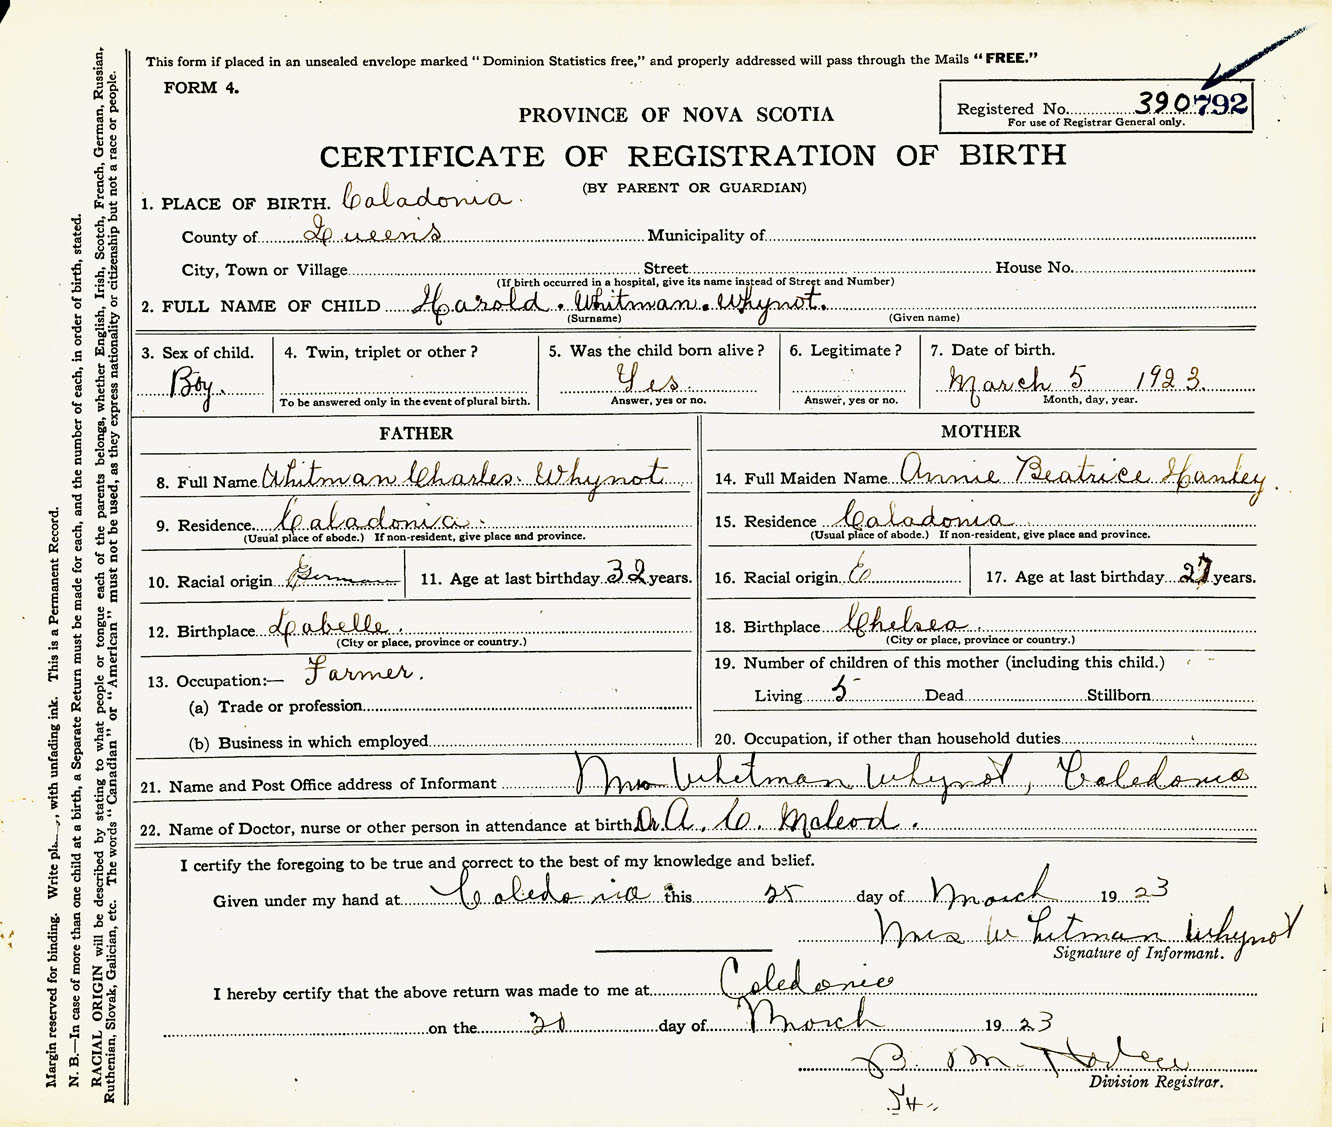 This form if placed in an unsealed envelope marked "Dominion Statistics free," and properly addressed will pass through the Mails "FREE."
FORM 4.
PROVINCE OF NOVA SCOTIA
Registered No. 390792
For use of Registrar General only.
CERTIFICATE OF REGISTRATION OF BIRTH
(BY PARENT OR GUARDIAN)
1. PLACE OF BIRTH. Caladonia.
County of Queen's Municipality of
City, Town or Village Street House No.
(If birth occurred in a hospital, give its name instead of Street and Number)
2. FULL NAME OF CHILD Harold. Whitman. Whynot.
(Surname) (Given name)
3. Sex of child. Boy.
4. Twin, triplet or other?
To be answered only in the event of plural birth.
5. Was the child born alive? Yes.
Answer, yes or no.
6. Legitimate?
Answer, yes or no.
7. Date of birth.
March 5 1923.
Month, day, year.
FATHER
8. Full Name Whitman Charles. Whynot
9. Residence. Caladonia.
(Usual place of abode.) If non-resident, give place and province.
10. Racial origin German 11. Age at last birthday 32 years.
12. Birthplace Labelle.
(City or place, province or country.)
13. Occupation:— Farmer.
(a) Trade or profession
(b) Business in which employed
MOTHER
14. Full Maiden Name Annie Beatrice Hanley.
15. Residence Caladonia
(Usual place of abode.) If non-resident, give place and province.
16. Racial origin E 17. Age at last birthday 27 years.
18. Birthplace Chelsea.
(City or place, province or country.)
19. Number of children of this mother (including this child.)
Living 5 Dead Stillborn
20. Occupation, if other than household duties
21. Name and Post Office address of Informant Mrs Whitman Whynot, Caledonia
22. Name of Doctor, nurse or other person in attendance at birth Dr. A. C. McLeod.
I certify the foregoing to be true and correct to the best of my knowledge and belief.
Given under my hand at Caledonia this 25 day of March 1923
Mrs Whitman Whynot
Signature of Informant.
I hereby certify that the above return was made to me at Caledonia
on the day of March 1923
B. M.
Division Registrar.
Margin reserved for binding. Write with unfading ink. This is a Permanent Record.
N. B.—In case of more than one child at a birth, a Separate Return must be made for each, and the number of each, in order of birth, stated.
RACIAL ORIGIN will be described by stating to what people or tongue each of the parents belongs, whether English, Irish, Scotch, French, German, Russian,
Ruthenian, Slovak, Galician, etc. The words "Canadian" or "American" must not be used, as they express nationality or citizenship but not a race or people.